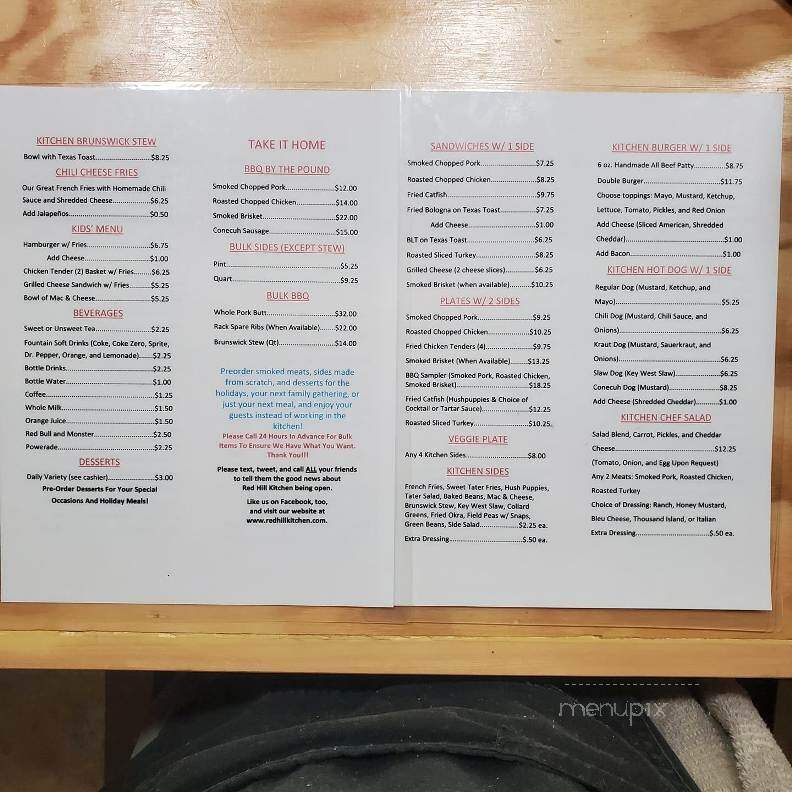 KITCHEN BRUNSWICK STEW
Bowl with Texas Toast.....................$8.25
CHILI CHEESE FRIES
Our Great French Fries with Homemade Chili
Sauce and Shredded Cheese.............$6.25
Add Jalapeños...................................$0.50
KIDS' MENU
Hamburger w/ Fries........................$6.75
Add Cheese.......................$1.00
Chicken Tender (2) Basket w/ Fries........$6.25
Grilled Cheese Sandwich w/ Fries........$5.25
Bowl of Mac & Cheese.....................$5.25
BEVERAGES
Sweet or Unsweet Tea......................$2.25
Fountain Soft Drinks (Coke, Coke Zero, Sprite,
Dr. Pepper, Orange, and Lemonade).....$2.25
Bottle Drinks...................................$2.25
Bottle Water....................................$1.00
Coffee.............................................$1.25
Whole Milk......................................$1.50
Orange Juice....................................$1.50
Red Bull and Monster.......................$2.50
Powerade........................................$2.25
DESSERTS
Daily Variety (see cashier)..................$3.00
Pre-Order Desserts For Your Special
Occasions And Holiday Meals!
TAKE IT HOME
BBQ BY THE POUND
Smoked Chopped Pork...............$12.00
Roasted Chopped Chicken...........$14.00
Smoked Brisket..........................$22.00
Conecuh Sausage.......................$15.00
BULK SIDES (EXCEPT STEW)
Pint...........................................$5.25
Quart........................................$9.25
BULK BBQ
Whole Pork Butt.........................$32.00
Rack Spare Ribs (When Available).....$22.00
Brunswick Stew (Qt)...................$14.00
Preorder smoked meats, sides made
from scratch, and desserts for the
holidays, your next family gathering, or
just your next meal, and enjoy your
guests instead of working in the
kitchen!
Please Call 24 Hours In Advance For Bulk
Items To Ensure We Have What You Want.
Thank You!!!
Please text, tweet, and call ALL your friends
to tell them the good news about
Red Hill Kitchen being open.
Like us on Facebook, too,
and visit our website at
www.redhillkitchen.com.
SANDWICHES W/ 1 SIDE
Smoked Chopped Pork.....................$7.25
Roasted Chopped Chicken................$8.25
Fried Catfish...................................$9.75
Fried Bologna on Texas Toast............$7.25
Add Cheese.......................$1.00
BLT on Texas Toast..........................$6.25
Roasted Sliced Turkey......................$8.25
Grilled Cheese (2 cheese slices)..........$6.25
Smoked Brisket (when available).......$10.25
PLATES W/ 2 SIDES
Smoked Chopped Pork.....................$9.25
Roasted Chopped Chicken................$10.25
Fried Chicken Tenders (4).................$9.75
Smoked Brisket (When Available)......$13.25
BBQ Sampler (Smoked Pork, Roasted Chicken,
Smoked Brisket)..............................$18.25
Fried Catfish (Hushpuppies & Choice of
Cocktail or Tartar Sauce)..................$12.25
Roasted Sliced Turkey......................$10.25.
VEGGIE PLATE
Any 4 Kitchen Sides.........................$8.00
KITCHEN SIDES
French Fries, Sweet Tater Fries, Hush Puppies,
Tater Salad, Baked Beans, Mac & Cheese,
Brunswick Stew, Key West Slaw, Collard
Greens, Fried Okra, Field Peas w/ Snaps,
Green Beans, Side Salad..................$2.25 ea.
Extra Dressing................................$.50 ea.
KITCHEN BURGER W/ 1 SIDE
6 oz. Handmade All Beef Patty...........$8.75
Double Burger................................$11.75
Choose toppings: Mayo, Mustard, Ketchup,
Lettuce, Tomato, Pickles, and Red Onion
Add Cheese (Sliced American, Shredded
Cheddar).......................................$1.00
Add Bacon.....................................$1.00
KITCHEN HOT DOG W/ 1 SIDE
Regular Dog (Mustard, Ketchup, and
Mayo)...........................................$5.25
Chili Dog (Mustard, Chili Sauce, and
Onions).........................................$6.25
Kraut Dog (Mustard, Sauerkraut, and
Onions).........................................$6.25
Slaw Dog (Key West Slaw).................$6.25
Conecuh Dog (Mustard)...................$8.25
Add Cheese (Shredded Cheddar)........$1.00
KITCHEN CHEF SALAD
Salad Blend, Carrot, Pickles, and Cheddar
Cheese..........................................$12.25
(Tomato, Onion, and Egg Upon Request)
Any 2 Meats: Smoked Pork, Roasted Chicken,
Roasted Turkey
Choice of Dressing: Ranch, Honey Mustard,
Bleu Cheese, Thousand Island, or Italian
Extra Dressing................................$.50 ea.
menupix